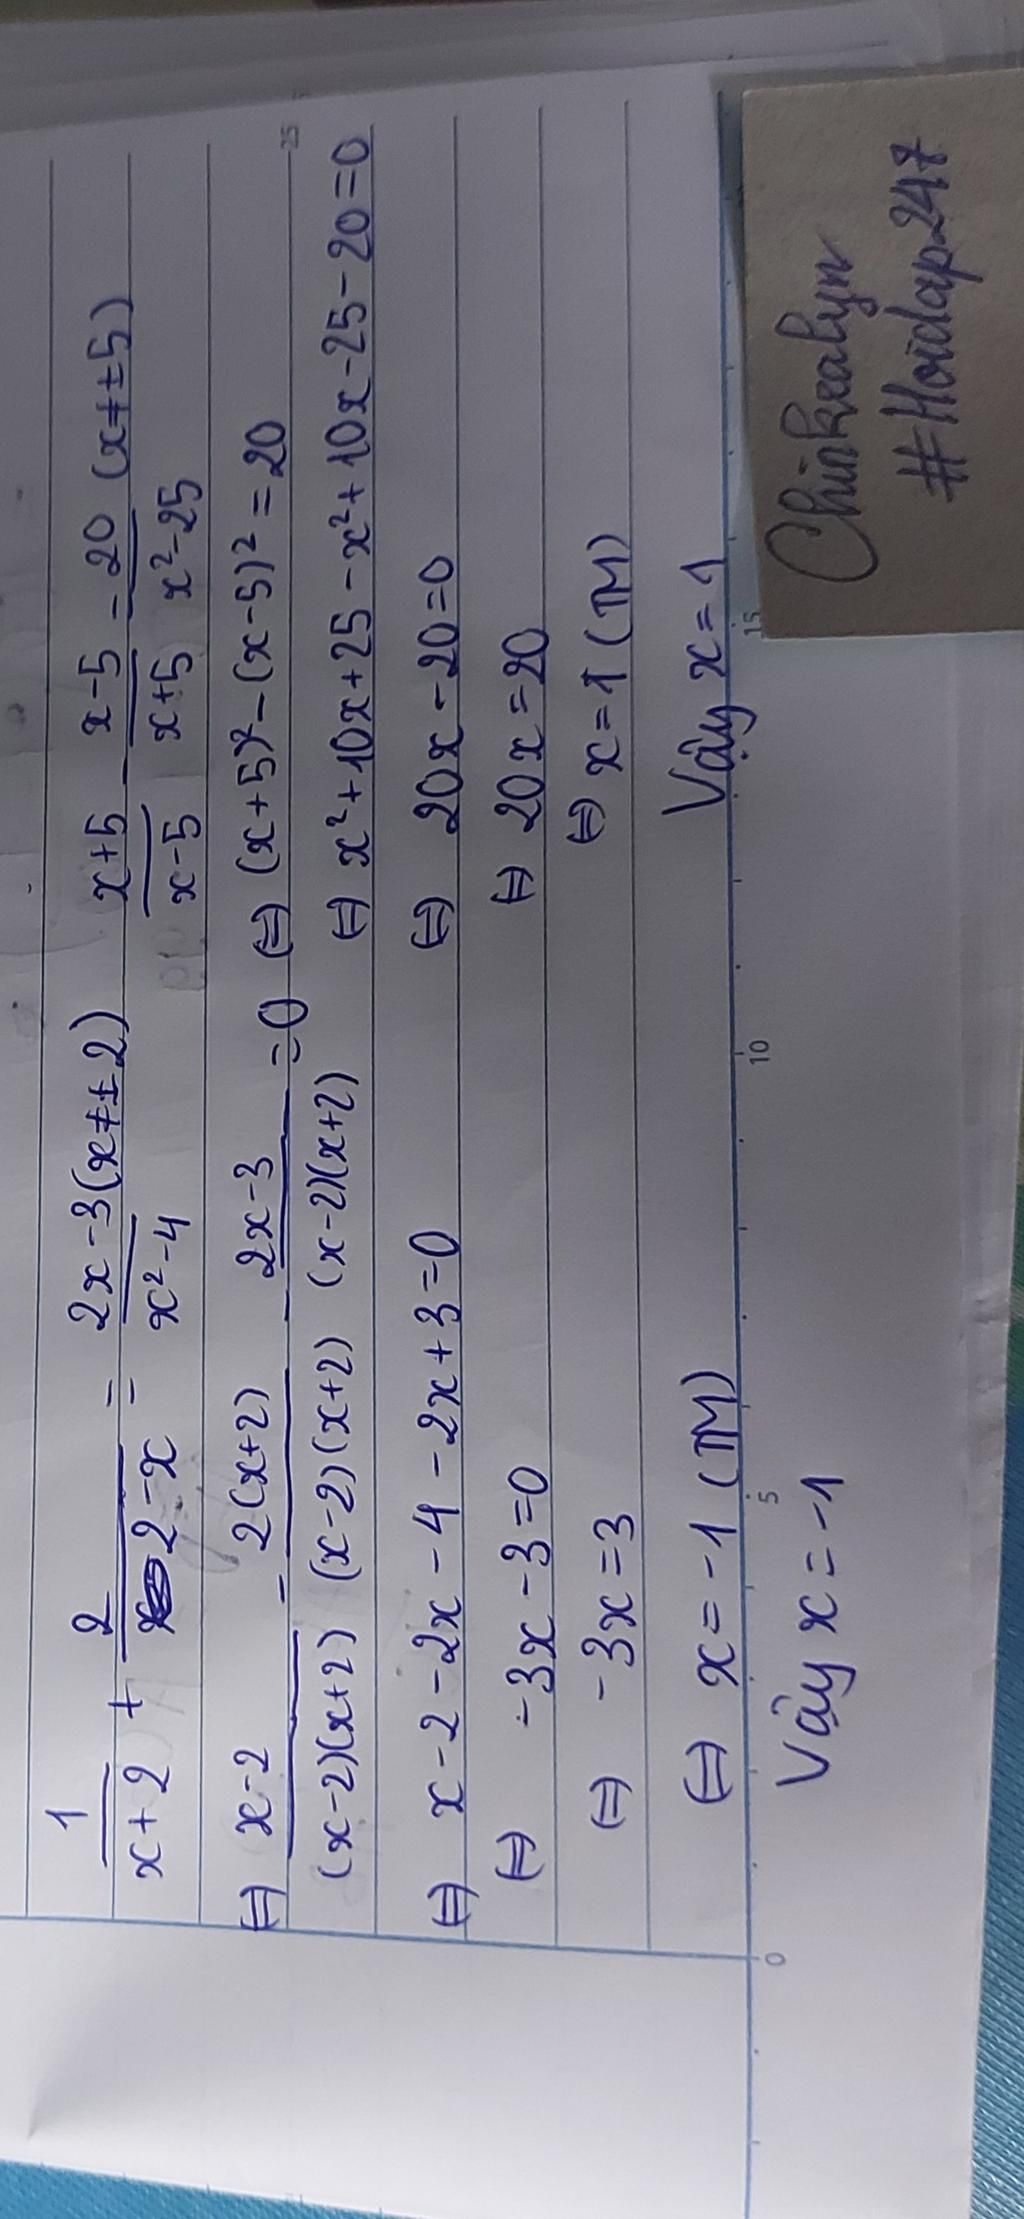 1/(x+2) + 2/(2-x) = (2x-3)/(x²-4) (x≠±2)
(=) (x-2)/((x-2)(x+2)) - 2(x+2)/((x-2)(x+2)) - (2x-3)/((x-2)(x+2)) = 0
(=) x-2-2x-4-2x+3=0
(=) -3x-3=0
(=) -3x=3
(=) x=-1 (TM)
Vậy x=-1
(x+5)/(x-5) - (x-5)/(x+5) = 20/(x²-25) (x≠±5)
(=) (x+5)²-(x-5)²=20
(=) x²+10x+25-x²+10x-25-20=0
(=) 20x-20=0
(=) 20x=20
(=) x=1 (TM)
Vậy x=1
0 5 10 15
25
Chinkealyn
#Hoidap247